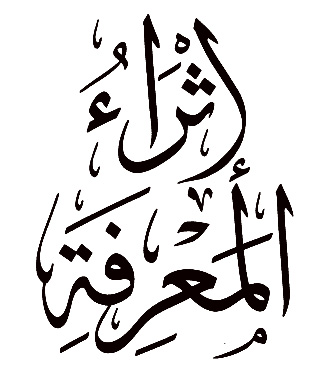 إثراء
المعرفة